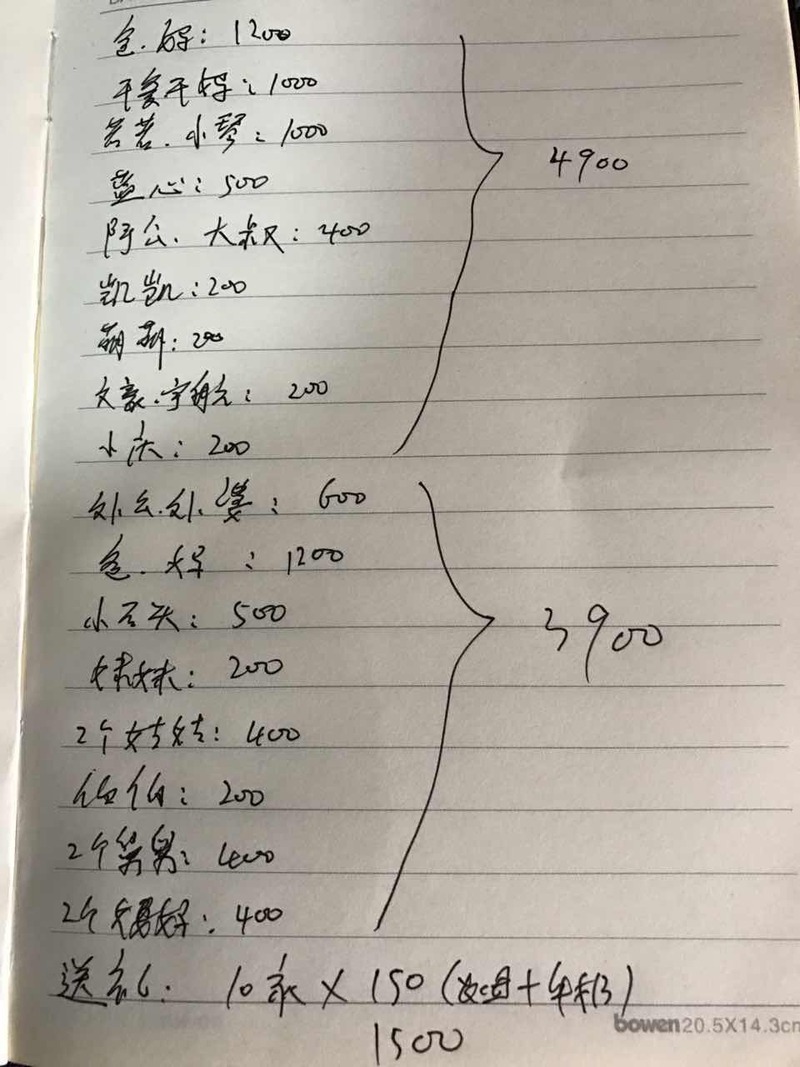 爸.妈：1200
干爸干妈：1000
苦苦.小琴：1000
蓝心：500
阿公.大叔：400
凯凯：200
萌萌：200
文豪.宇航：200
小庆：200
4900
外公.外婆：600
爸.妈：1200
小石头：500
妹妹：200
2个姑姑：400
伯伯：200
2个舅舅：400
2个舅妈：400
3900
送礼：10家×150(+年糕)
1500
bowen20.5X14.3cm